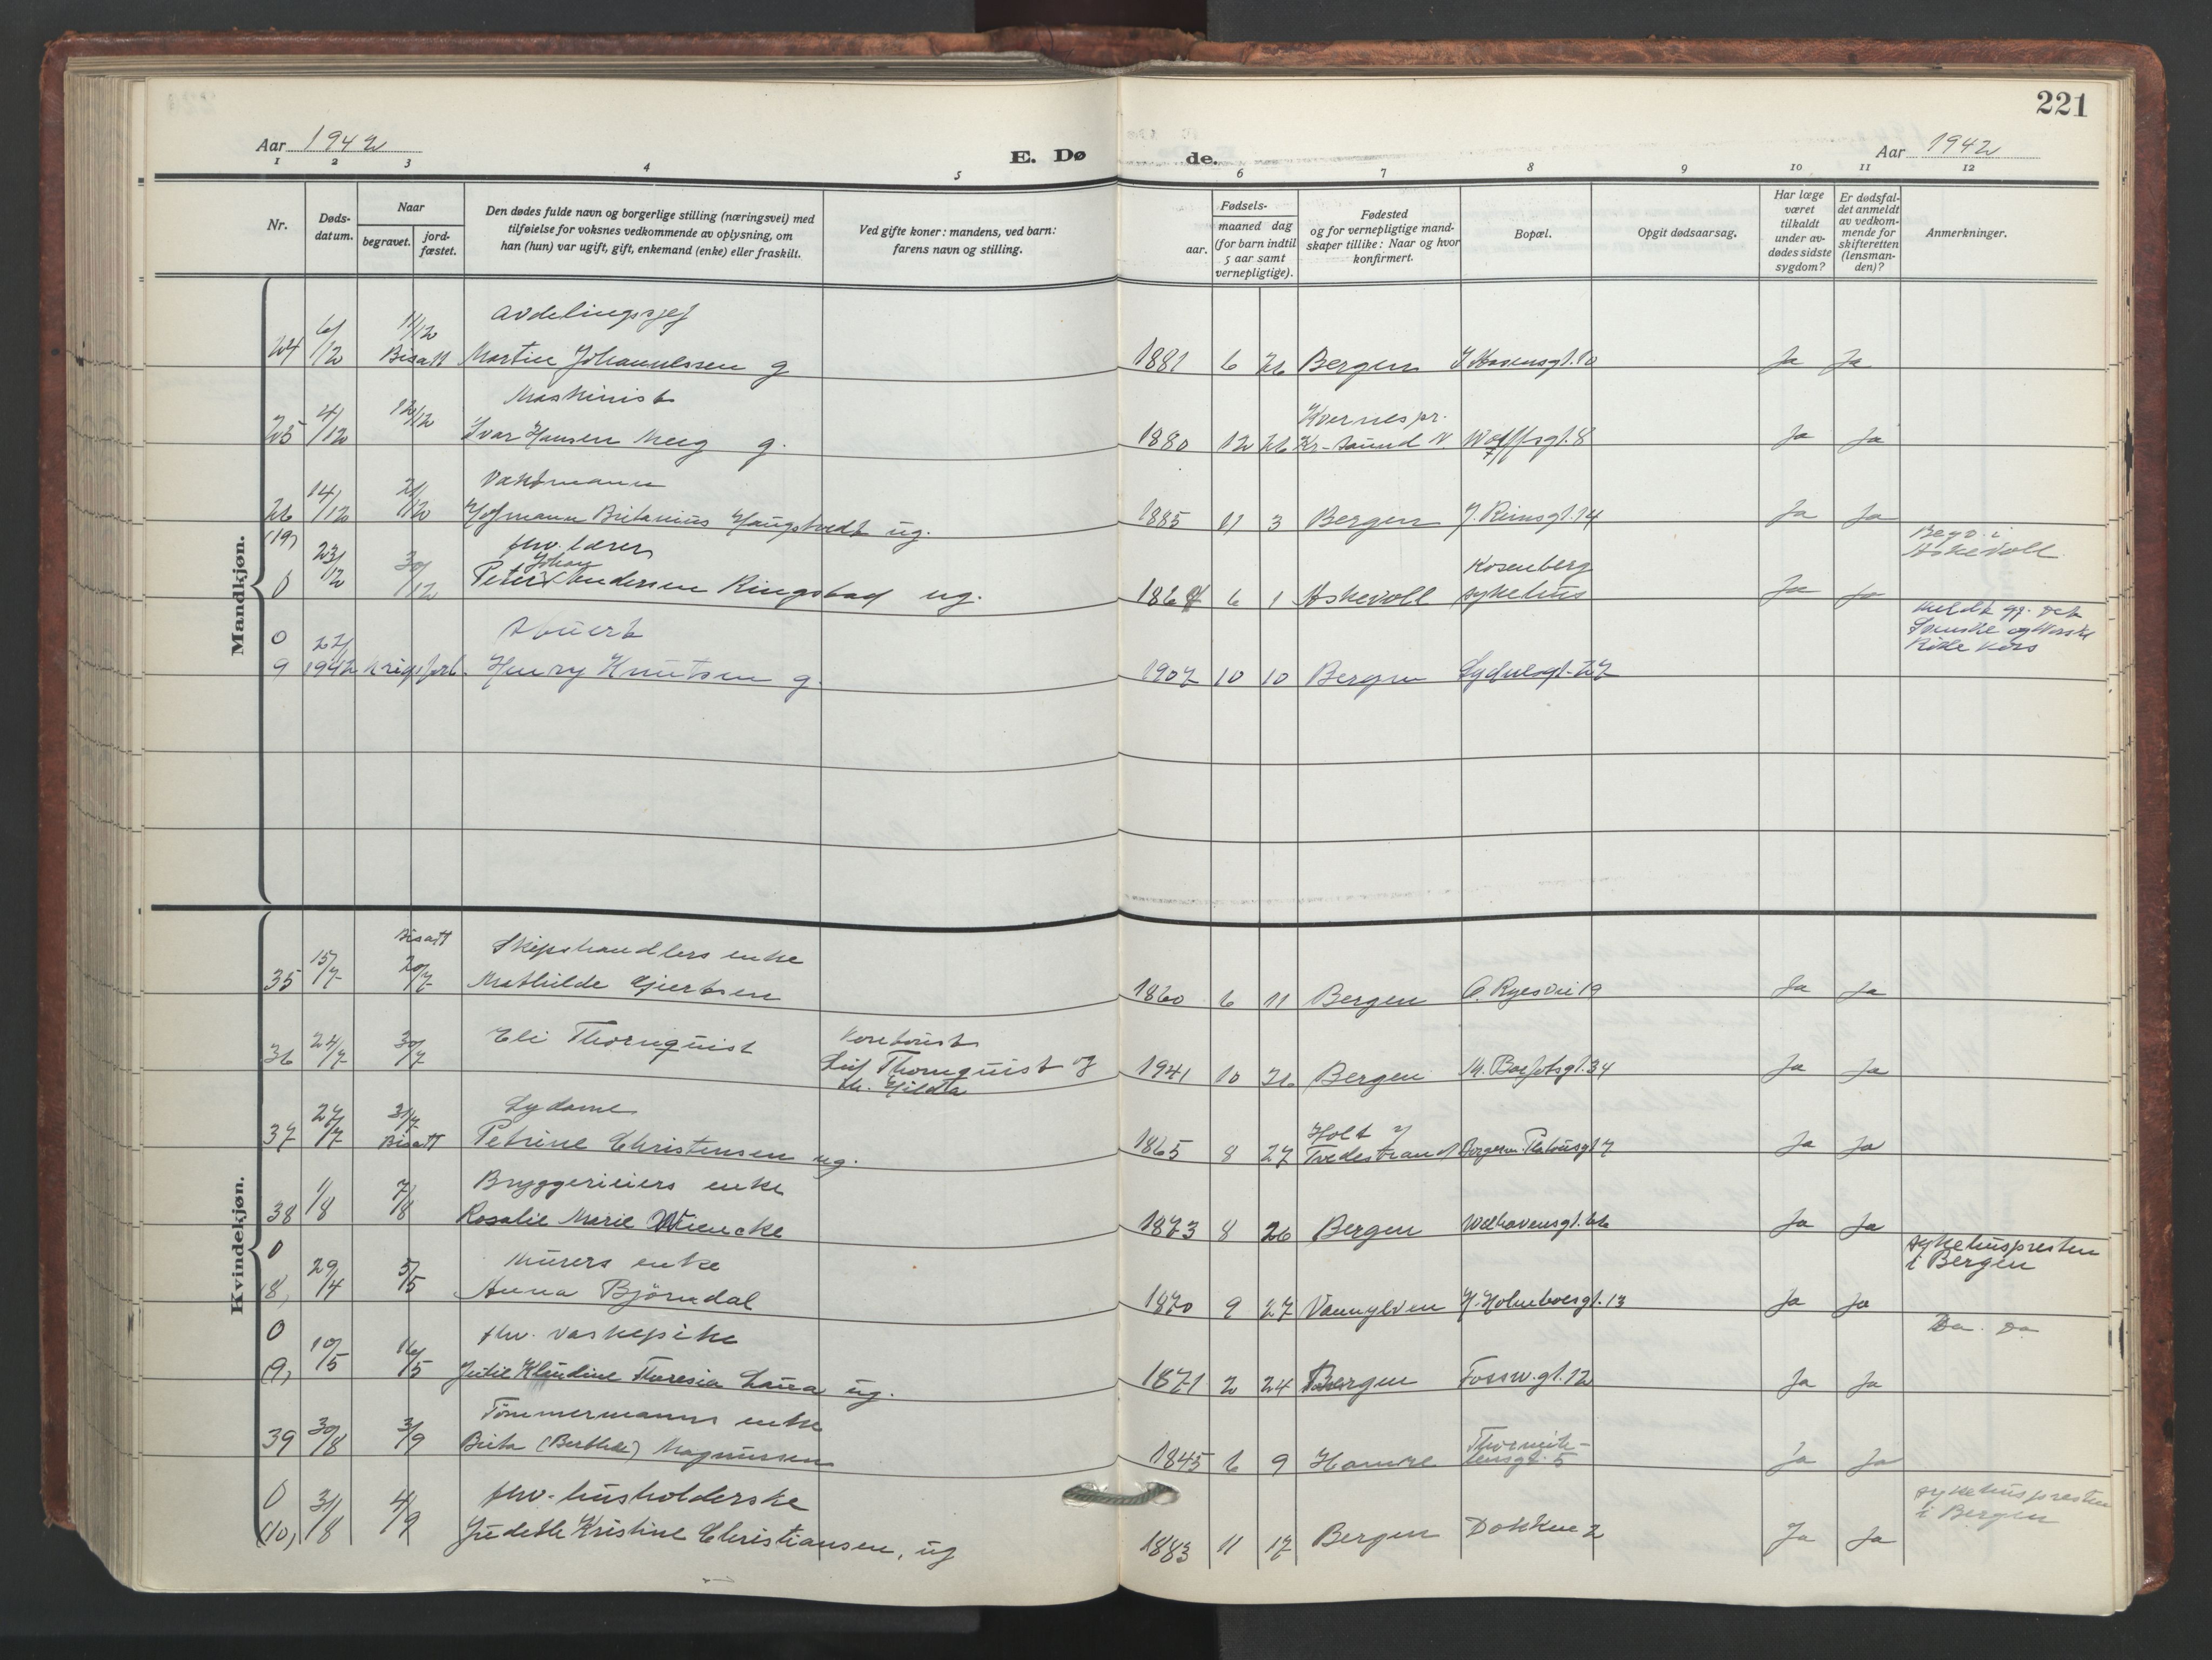 221
Aar 1942
E. Dø
de.
Aar 1942
1 2 3 4 5 6 7 8 9 10 11 12
Nr.
Døds-
datum.
Naar
begravet.
jord-
fæstet.
Den dødes fulde navn og borgerlige stilling (næringsvei) med
tilføielse for voksnes vedkommende av oplysning, om
han (hun) var ugift, gift, enkemand (enke) eller fraskilt.
Ved gifte koner: mandens, ved barn:
farens navn og stilling.
aar.
Fødsels-
maaned dag
(for barn indtil
5 aar samt
vernepligtige).
Fødested
og for vernepligtige mand-
skaper tillike: Naar og hvor
konfirmert.
Bopæl.
Opgit dødsaarsag.
Har læge
været
tilkaldt
under av-
dødes sidste
sygdom?
Er dødsfal-
det anmeldt
av vedkom-
mende for
skifteretten
(lensman-
den)?
Anmerkninger.
Mandkjøn.
Avdelingssjef
24 6/12 11/12 Bisatt Martin Johannessen g 1881 6 26 Bergen Ja Ja
Maskinist
25 4/12 12/12 Ivar Hansen g. 1880 12 26 Kvernes pr.
Kr-sund N. Wolffsgt. 8 Ja Ja
Vaktmann
26 14/12 21/12 Hofmann Britanius Haugstvedt ug. 1885 11 3 Bergen Ja Ja
(19) fhv. lærer
Johan
Begr. i
Askevoll
0 23/12 30/12 Peter Andersen Ringstad ug. 1864 6 1 Askevoll Rosenberg
sykehus Ja Ja
0 Stuert
Meldt gj. det
Svenske og Norske
Røde Kors
9 27/ 1942 krigsforl. Henry Knutsen g. 1907 10 10 Bergen
Kvindekjøn.
Bisatt
Skipshandlers enke
35 15/7 20/7 Mathilde Gjertsen 1860 6 11 Bergen O. Ryesvei 19 Ja Ja
36 24/7 30/7 Eli Thornquist Kontorist
Leif Thornquist og
h. Hildta 1941 10 26 Bergen Ja Ja
Sydame
37 27/7 31/7 Bisatt Petrine Christensen ug. 1865 8 27 Holt
Tvedestrand Ja Ja
Bryggerieiers enke
38 1/8 7/8 Rosalie Marie Wiencke 1873 8 26 Bergen Welhavensgt. 66 Ja Ja
0 Murers enke
sykehuspresten
i Bergen
(8) 29/4 5/5 Anna Björndal 1870 9 27 Vannylven J. Holmboesgt. 13 Ja Ja
0 fhv. vaskepike
Do. do
(9) 10/5 16/5 Julie Klaudine Theresia ug. 1871 2 24 Bergen Fossw.gt. 12 Ja Ja
Tömmermanns enke
39 30/8 3/9 Brita (Berthe) Magnussen 1845 6 9 Hamre Thormöh-
lensgt. 5 Ja Ja
0 fhv. husholderske
sykehuspresten
i Bergen
(10) 31/8 4/9 Judethe Kristine Christiansen, ug 1883 11 17 Bergen Dokken 2 Ja Ja